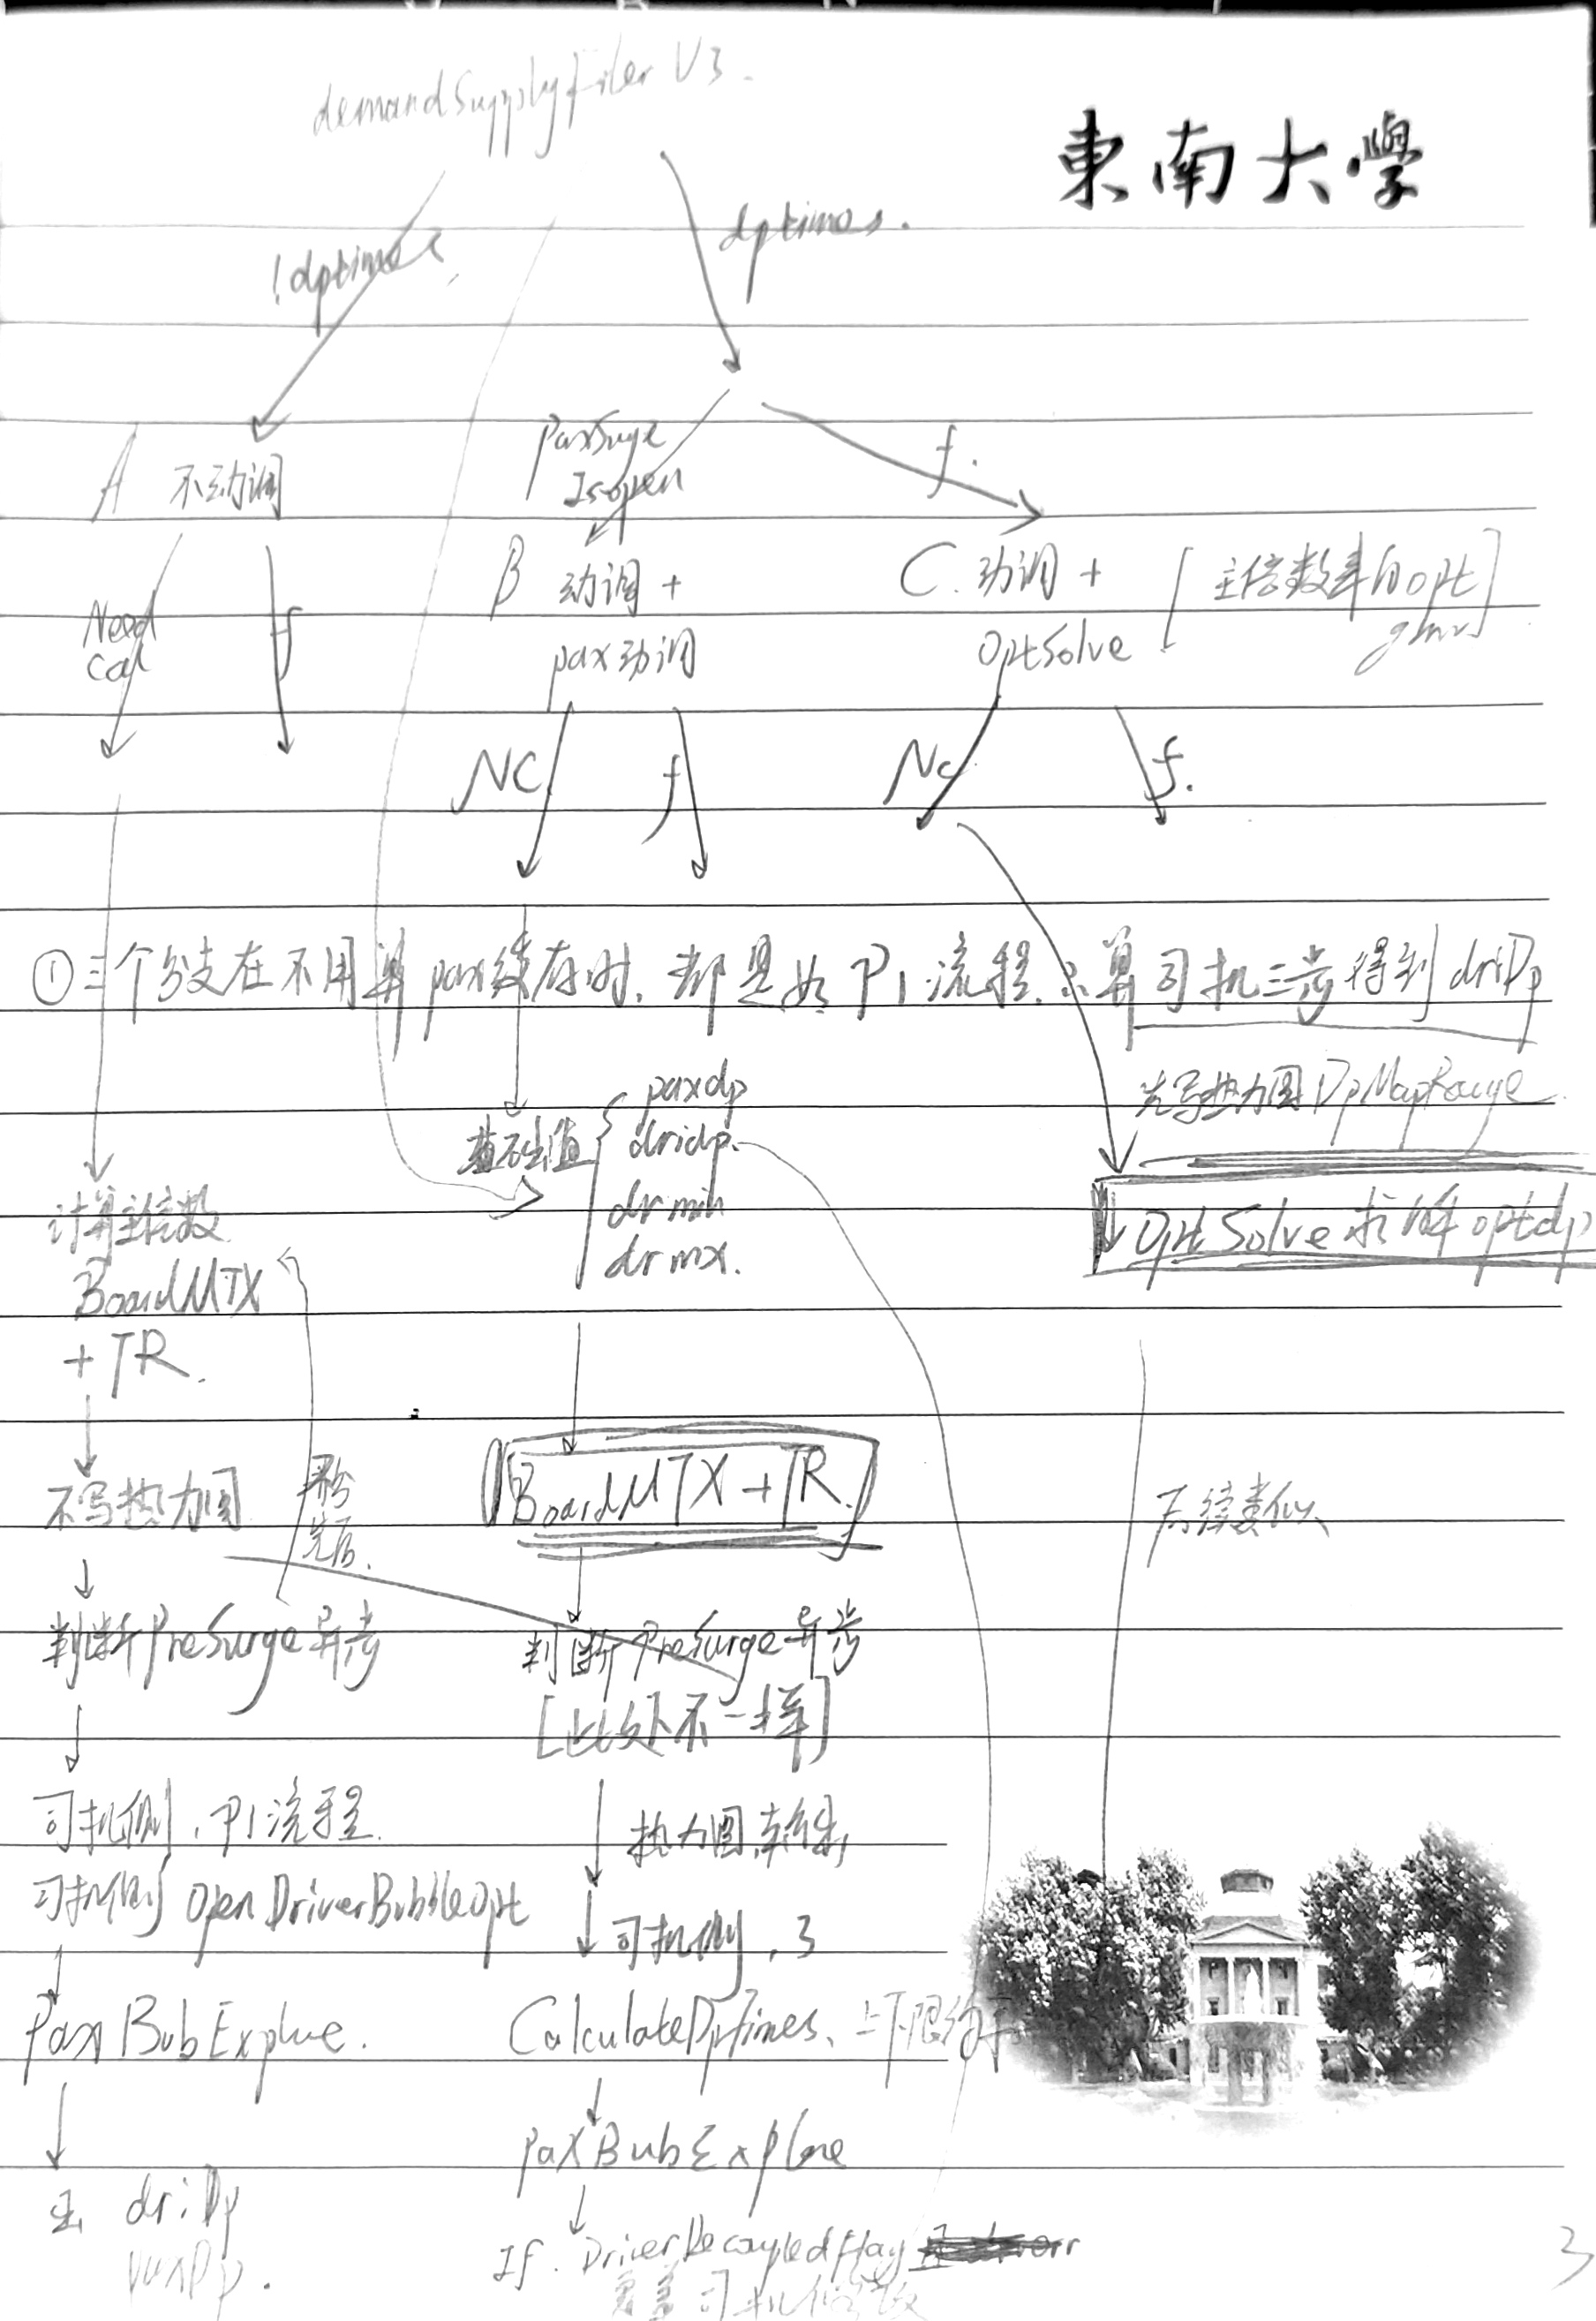 demandSupplyFiler V3.
東南大學
!dptimes
dptimes.
A 不动调
PaxSurge
Isopen
f.
B 动调 +
pax动调
C. 动调 +
OptSolve
[主倍数率的opt
gmv]
Need
Cal
f
NC
f
NC
f.
①三个分支在不用算pax缓存时, 都是如P1流程, 只算司机三步得到driDp
先写热力图DpMapRange
paxdp
dridp.
dr min
dr mx.
计算主倍数
BoardMTX
+ TR.
OptSolve求解optdp
不写热力图
BoardMTX + TR.
后续类似
判断PreSurge异步
判断PreSurge异步
[此处不一样]
司机侧, P1流程
热力图
司机侧 OpenDriverBubbleOpt
司机侧, 3
PaxBubExplore.
CalculateDpTimes, 上下限约束
PaxBubExplore
driDp
paxDp.
If. DriverDecoupledFlag
覆盖司机倍数
3